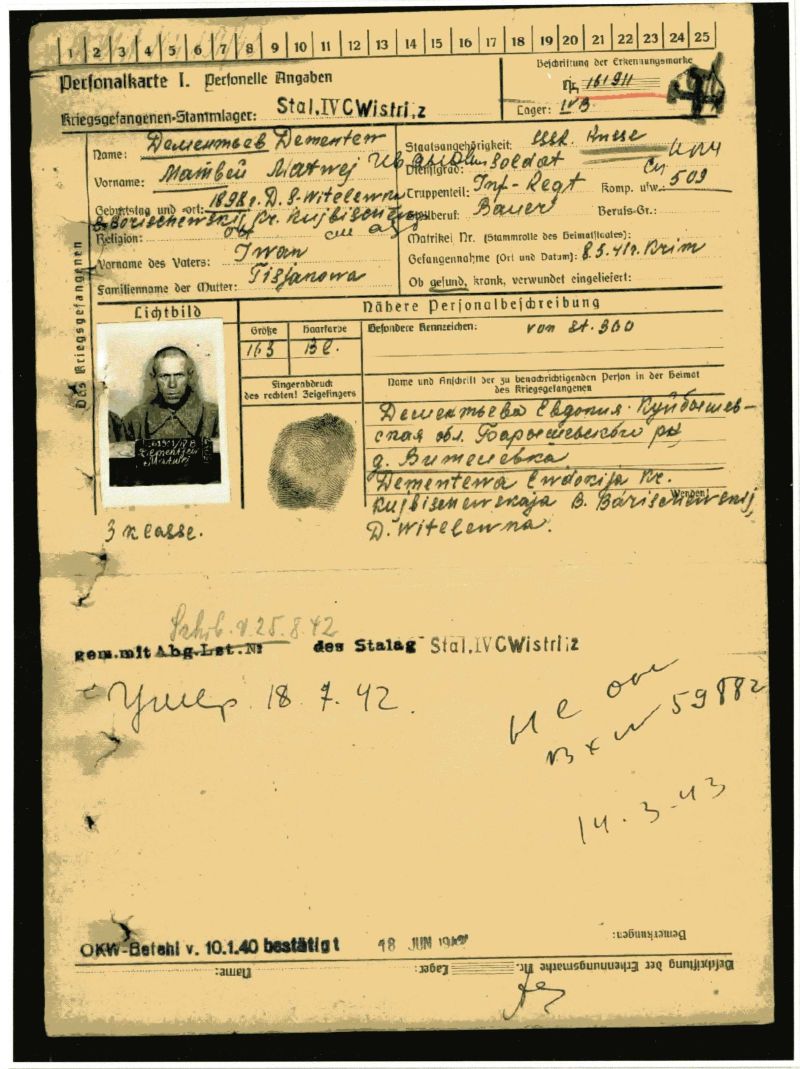 1 2 3 4 5 6 7 8 9 10 11 12 13 14 15 16 17 18 19 20 21 22 23 24 25
Personalkarte I. Personelle Angaben
Beschriftung der Erkennungsmarke
Nr. 161911
Kriegsgefangenen-Stammlager: Stal. IV C Wistritz
Lager: IV B
Des Kriegsgefangenen
Name: Дементьев Dementew
Staatsangehörigkeit: Russe
Vorname: Матвей Matwej Иванович
Dienstgrad: Soldat
Truppenteil: Inf-Regt Komp. usw.: 509
Geburtstag und -ort: 1898 г. D. S-Witelewna
B. Borischewskij Kr. Kujbischew
Zivilberuf: Bauer Berufs-Gr.:
Religion:
Matrikel Nr. (Stammrolle des Heimatstaates):
Vorname des Vaters: Iwan
Gefangennahme (Ort und Datum): 8.5.41г. Krim
Familienname der Mutter: Tisjanowa
Ob gesund, krank, verwundet eingeliefert:
Lichtbild
Nähere Personalbeschreibung
Größe Haarfarbe Besondere Kennzeichen: von St. 300
163 Bl.
Fingerabdruck
des rechten! Zeigefingers
Name und Anschrift der zu benachrichtigenden Person in der Heimat
des Kriegsgefangenen
Дементьева Евдокия Куйбышев-
ская обл. Барышевского
д. Вителевка
Dementewa Ewdokija Kr.
Kujbischewskaja B. Barischewskij,
Wenden!
D. Witelewna.
Dementjew
Matwej
3 Klasse.
v. 25.8.42
gem. mit Abg.Lst. Nr des Stalag Stal. IV C Wistritz
Умер 18.7.42.
59882
14.3.43
OKW-Befehl v. 10.1.40 bestätigt 18 JUN 1942
Bemerkungen:
Beschriftung der Erkennungsmarke Nr. Lager: Name: